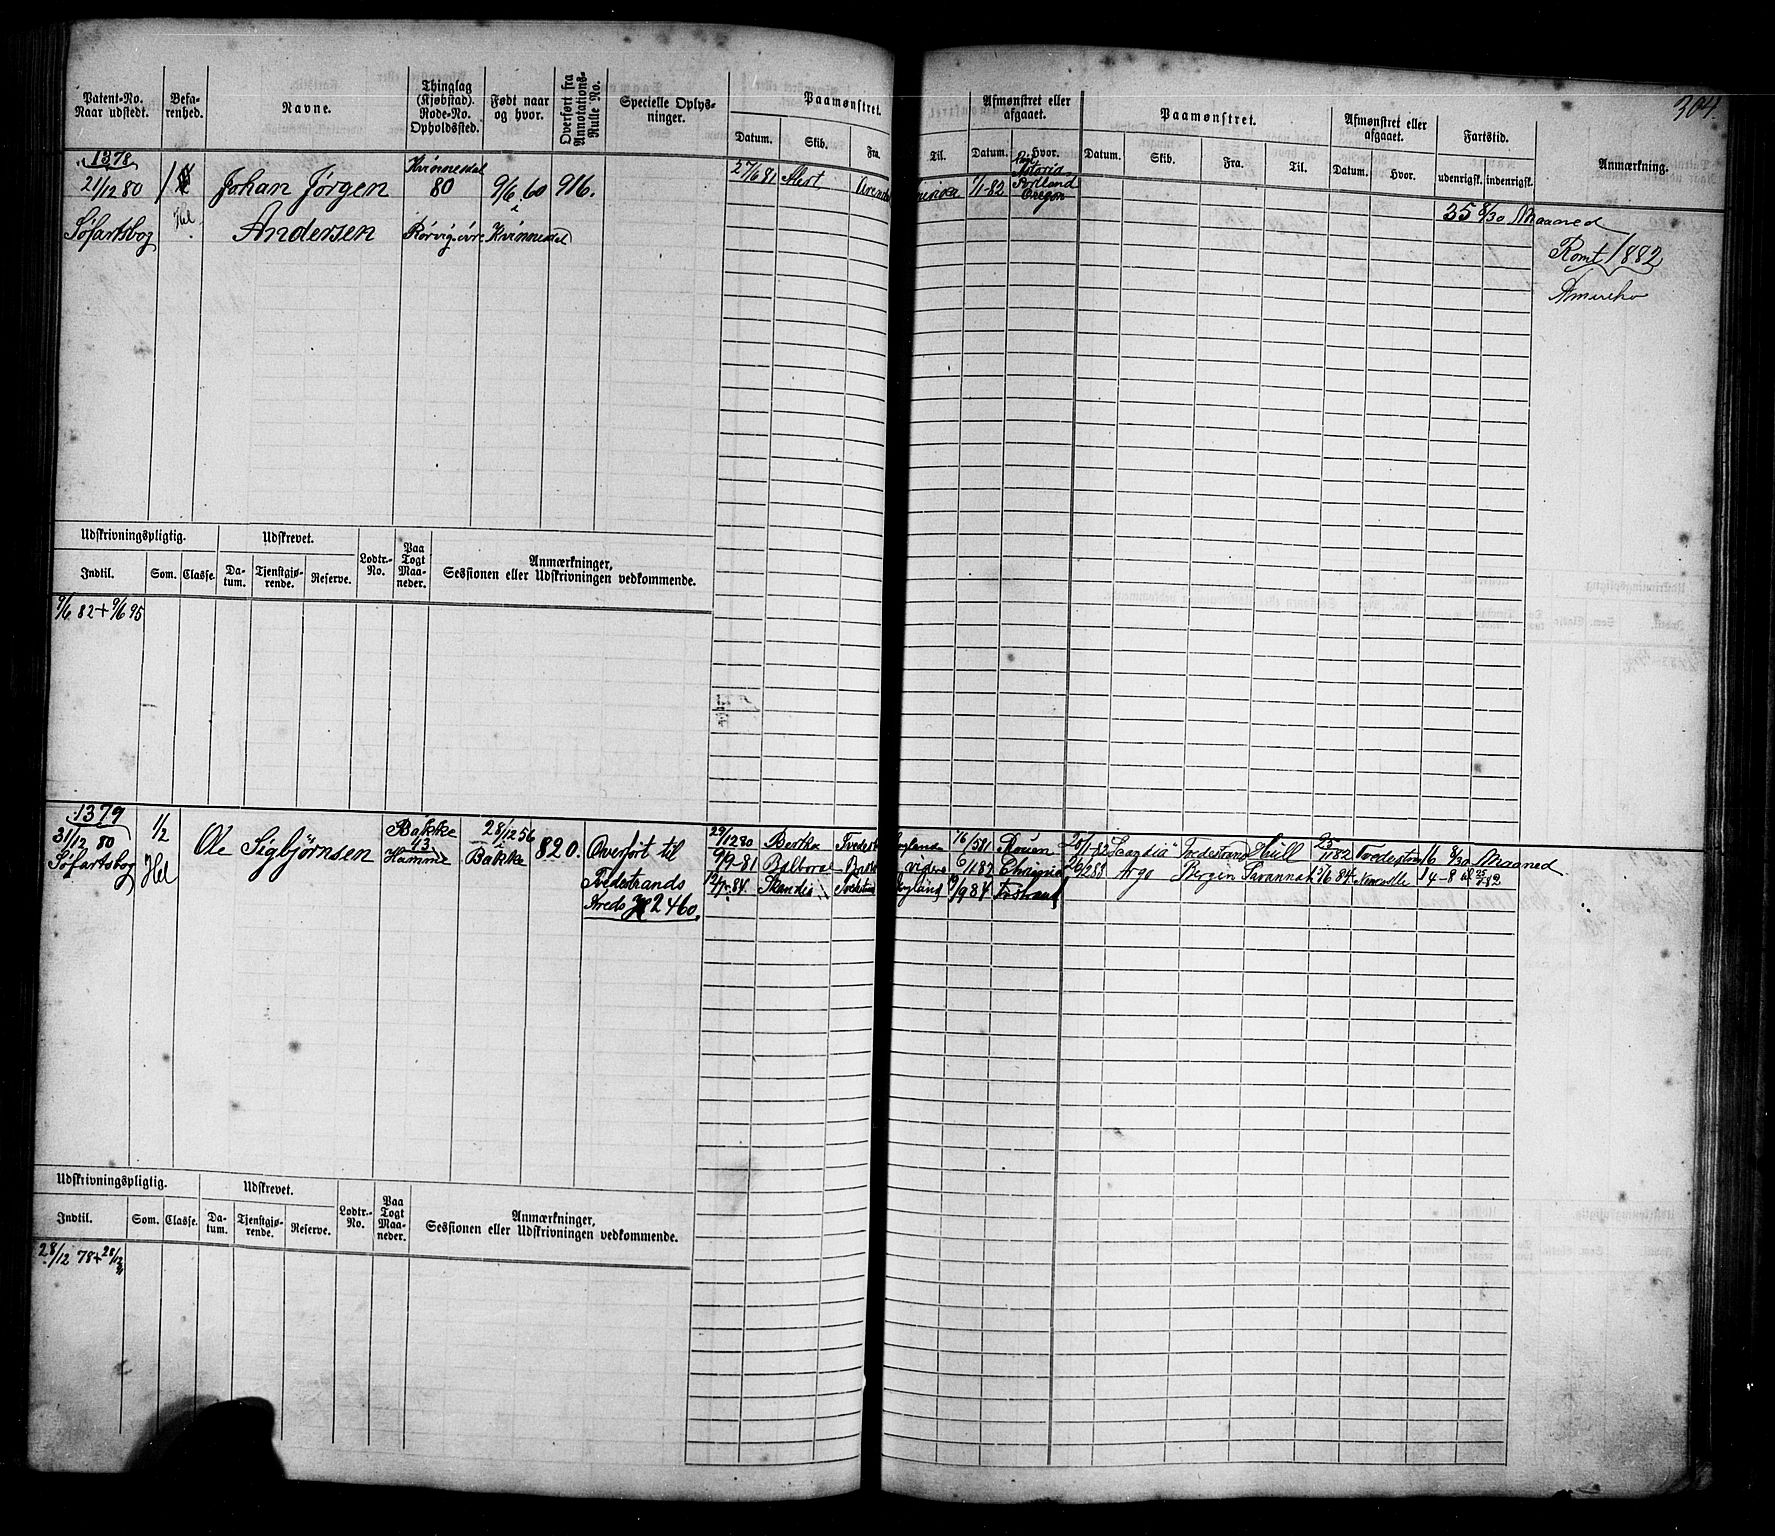 304.
Patent-No. Naar udstedt.
Befarenhed.
Navne.
Thinglag (Kjøbstad). Rode-No. Opholdssted.
Født naar og hvor.
Overført fra Annotations-Rulle No.
Specielle Oplysninger.
Paamønstret.
Datum. Skib. Fra. Til.
Afmønstret eller afgaaet.
Datum. Hvor.
Paamønstret.
Datum. Skib. Fra. Til.
Afmønstret eller afgaaet.
Datum. Hvor.
Fartstid.
udenrigsk. indenrigsk.
Anmærkning.
1378
21/12 80
Søfartsbog
Hel
Johan Jørgen
Andersen
Kvinnesdal
80
Rørvig øvre
9/6 60
i
Kvinnesdal
916.
27/6 81
1/1-82 Astoria
Portland
Oregon
35 8/30 Maaned
Rømt 1882
Amerika
Udskrivningspligtig. Udskrevet. Lodtr.-No. Paa Togt Maaneder. Anmærkninger,
Sessionen eller Udskrivningen vedkommende.
Indtil. Som. Classe. Datum. Tjenstgjørende. Reserve.
9/6 82 + 9/6 95
1379
31/12 80
Søfartsbog
1/2
Hel
Ole Sigbjørnsen
Bakke
43
Hamme
28/12 56
i
Bakke
820.
Overført til
Tvedestrands
Kreds № 2460.
29/12 80 Bertha Tvedest England 16/5 81 Rouen Scandia Tvedestrand Hull 25/11 82 Tvedestrand 16 8/30 Maaned
9/9-81 6/1 82 Argo Bergen Savannah 84 14-8
84. Skandia Tvedestrand England 9/9 84
Udskrivningspligtig. Udskrevet. Lodtr.-No. Paa Togt Maaneder. Anmærkninger,
Sessionen eller Udskrivningen vedkommende.
Indtil. Som. Classe. Datum. Tjenstgjørende. Reserve.
28/12 78 + 28/12 91